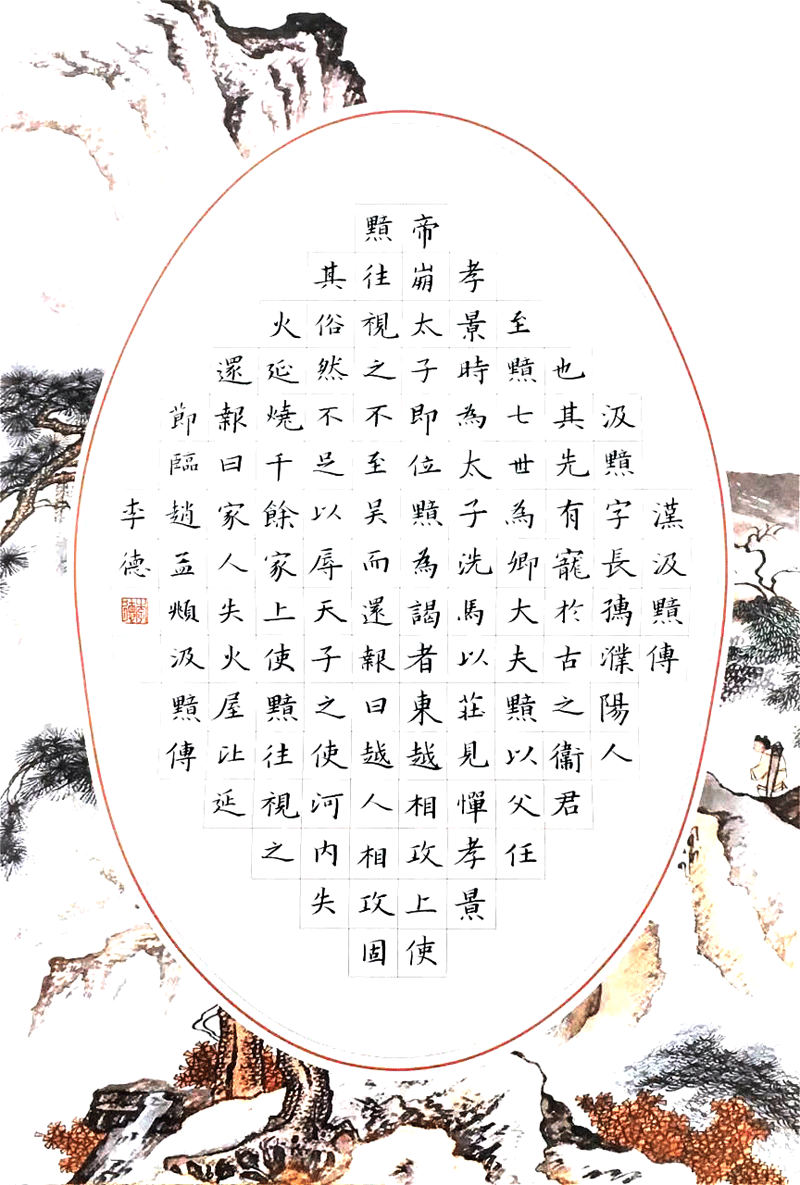 漢汲黯傳
汲黯字長孺濮陽人
也其先有寵於古之衛君
至黯七世為卿大夫黯以父任
孝景時為太子洗馬以莊見憚孝景
帝崩太子即位黯為謁者東越相攻上使
黯往視之不至吳而還報曰越人相攻固
其俗然不足以辱天子之使河內失
火延燒千餘家上使黯往視之
還報曰家人失火屋比延
節臨趙孟頫汲黯傳
李德